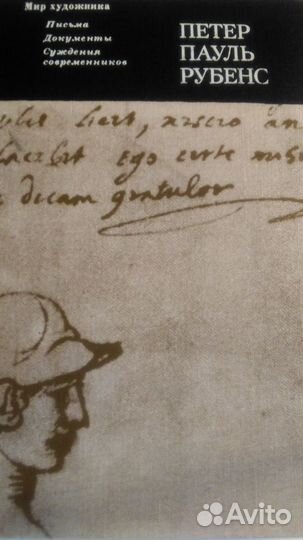 Мир художника
Письма
Документы
Суждения
современников
ПЕТЕР
ПАУЛЬ
РУБЕНС
liert, nescio an
Ego certe
dicam gratulor
Avito